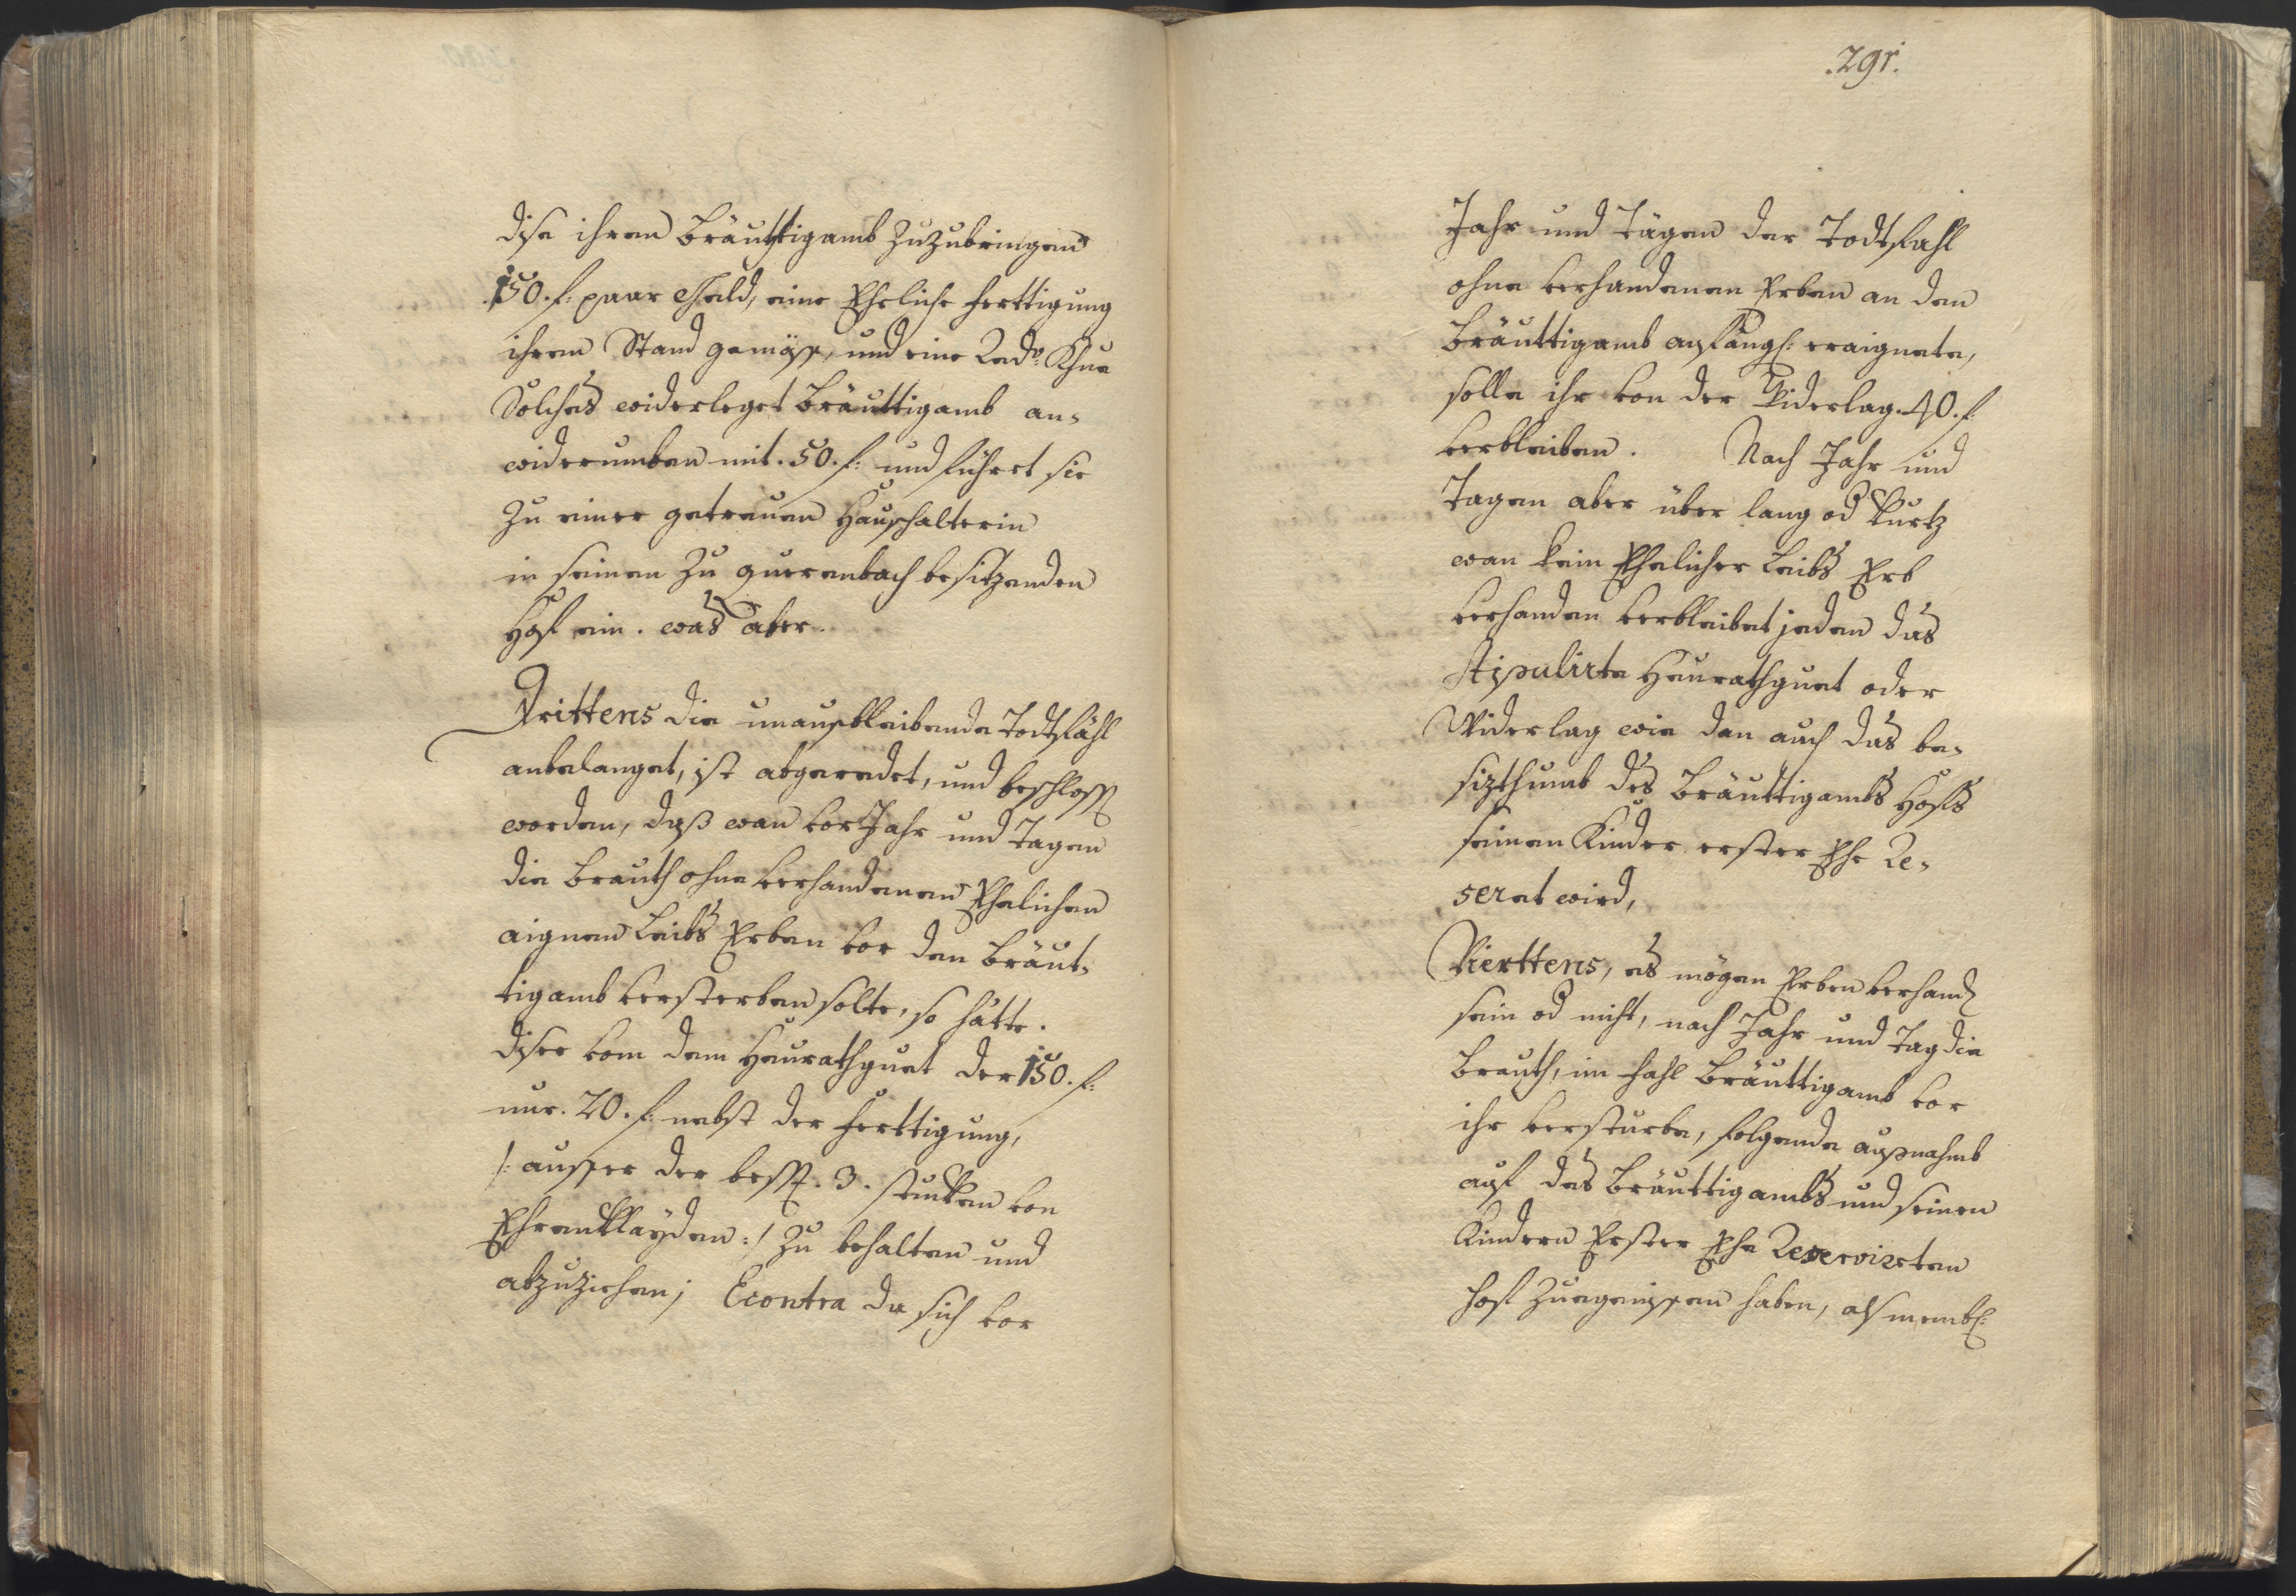 dise ihrem Bräuthigamb Zuzubringen
150. f: paar Geld, eine Eheliche Ferttigung
ihrem Stand gemäss, und eine Redo: Khue
Solches widerleget Bräuttigamb an-
widerumben mit. 50. f: und führet sie
Zu einer getreuen Haußhalterin
in seinen Zu querenbach besitzenden
Hof ein. was aber
Drittens die unausbleibende Todtfähl
anbelanget, ist abgeredet, und beschloss
worden, daß wan vor Jahr und Tagen
die Brauth ohne verhandenen Ehelichen
aignen Leibs Erben vor dem Bräut-
tigamb versterben solte, so hätte.
diser vom dem Heurathguet der 150. f:
nur. 20. f: nebst der Ferttigung,
/: ausser der bess. 3. stucken von
Ehrenklayden :/ Zu behalten und
abzuziehen; Econtra da sich vor
.291.
Jahr und Tägen der Todtfahl
ohne verhandenen Erben an dem
Bräuttigamb anfängl: eraignete,
solle ihr von der Widerlag. 40. f
verbleiben. Nach Jahr und
Tagen aber über lang od kurtz
wan kein Ehelicher Leibs Erb
verhanden verbleibet jedem das
stipulirte Heurathguet oder
Widerlag wie dan auch das be-
sizthumb des Bräuttigambs Hofs
seinen Kinder erster Ehe Re-
servet wird,
Vierttens, es mögen Erben verhand
sein od nicht, nach Jahr und Tag die
Brauth, im fahl Bräuttigamb vor
ihr versturbe, folgende außnahmb
auf des Bräuttigambs und seinen
Kindern Erster Ehe Reservirten
hof Zuegenissen haben, als nembl: